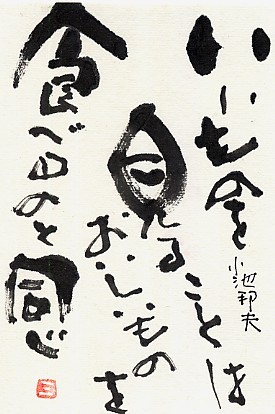 いいものを
見ることは
おいしいものを
食べるのと同じ
小池邦夫